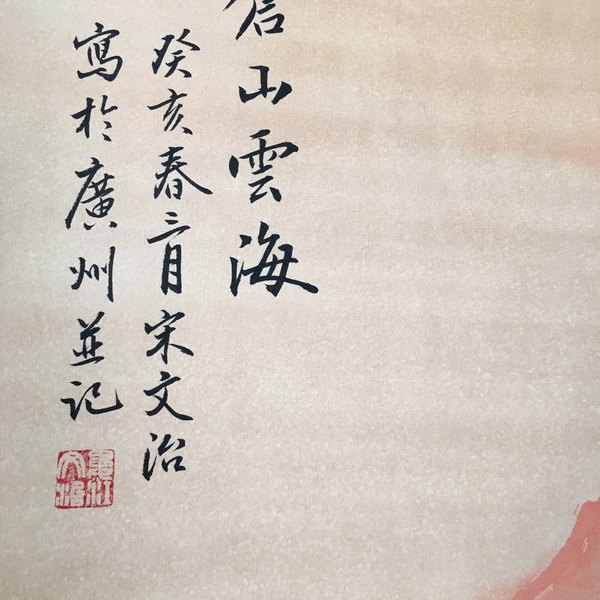 山雲海
癸亥春三月宋文治
寫於廣州並記